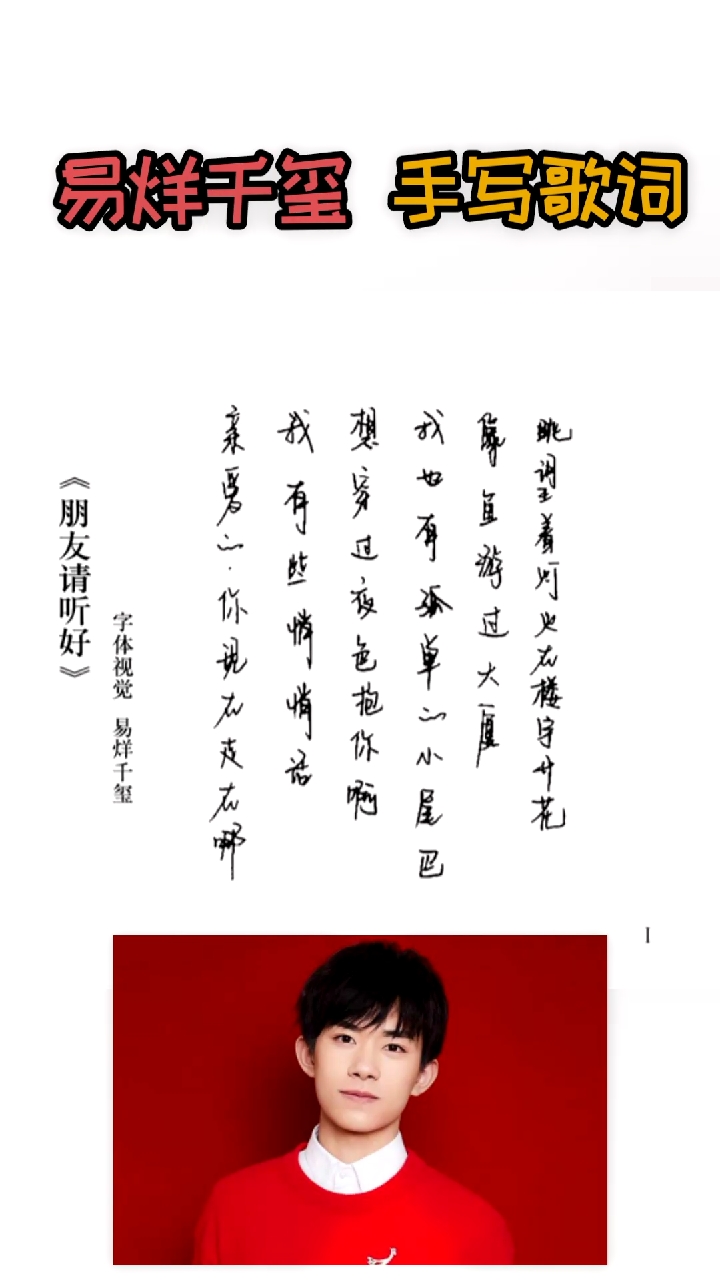 易烊千玺 手写歌词
眺望着灯火在楼宇开花
像鱼游过大厦
我也有孤单的小尾巴
想穿过夜色抱你啊
我有些悄悄话
亲爱的·你现在走在哪
字体视觉 易烊千玺
《朋友请听好》
I